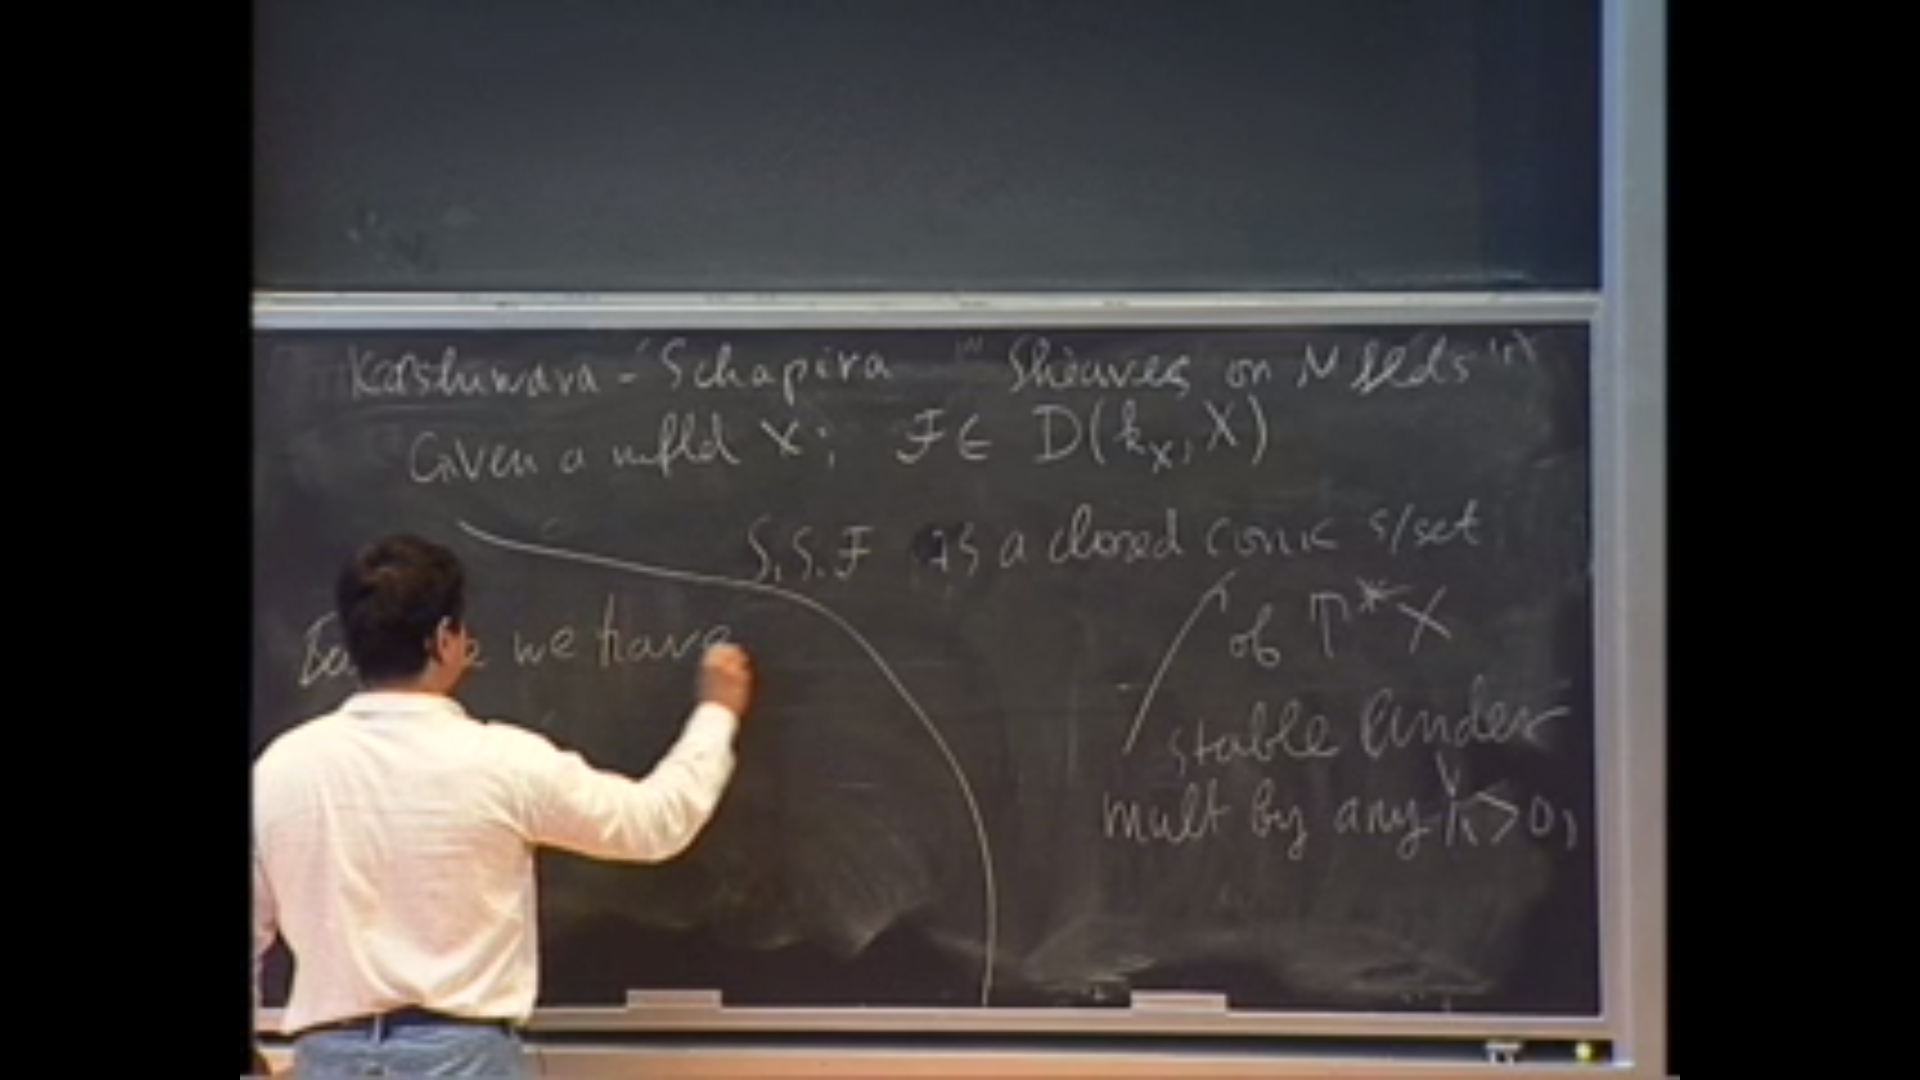 Kashiwara - Schapira "Sheaves on Mflds"
Given a mfld X; F ∈ D(k_X, X)
S.S.F is a closed conic s/set
of T*X
stable under
mult by any λ>0,
we have